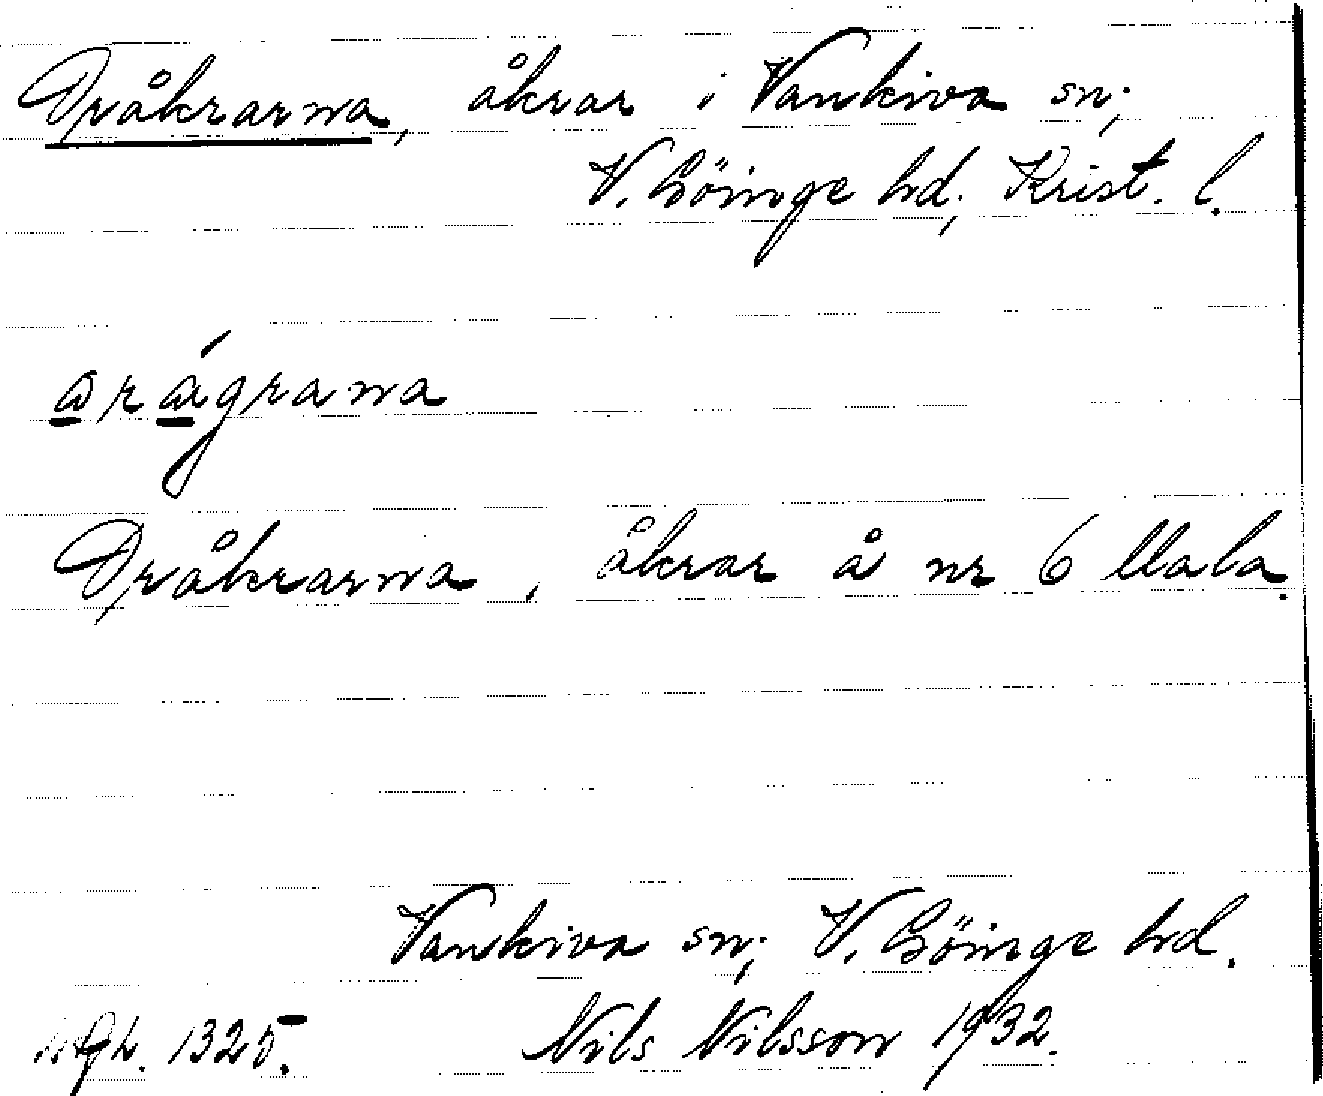 Oråkrarna, åkrar i Vankiva sn;
V. Göinge hd; Krist. l.
arágrana
Oråkrarna, åkrar å nr 6 Mala.
Vankiva sn; V. Göinge hd.
1325. Nils Nilsson 1932.